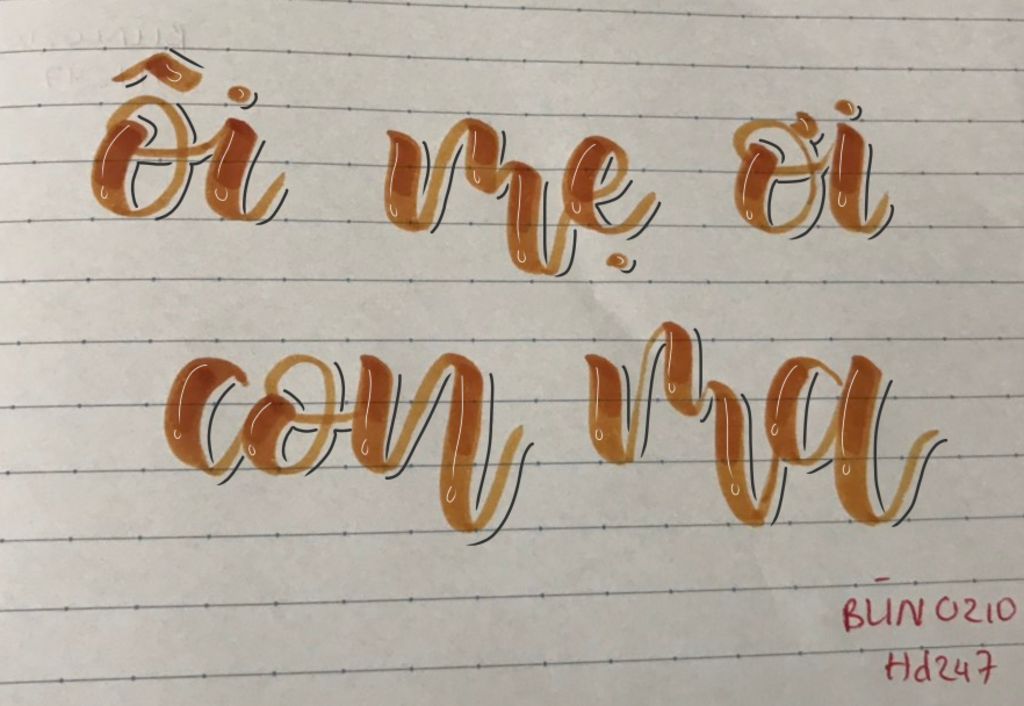 Ôi mẹ ơi
con ma
BLĪN0210
Hd247